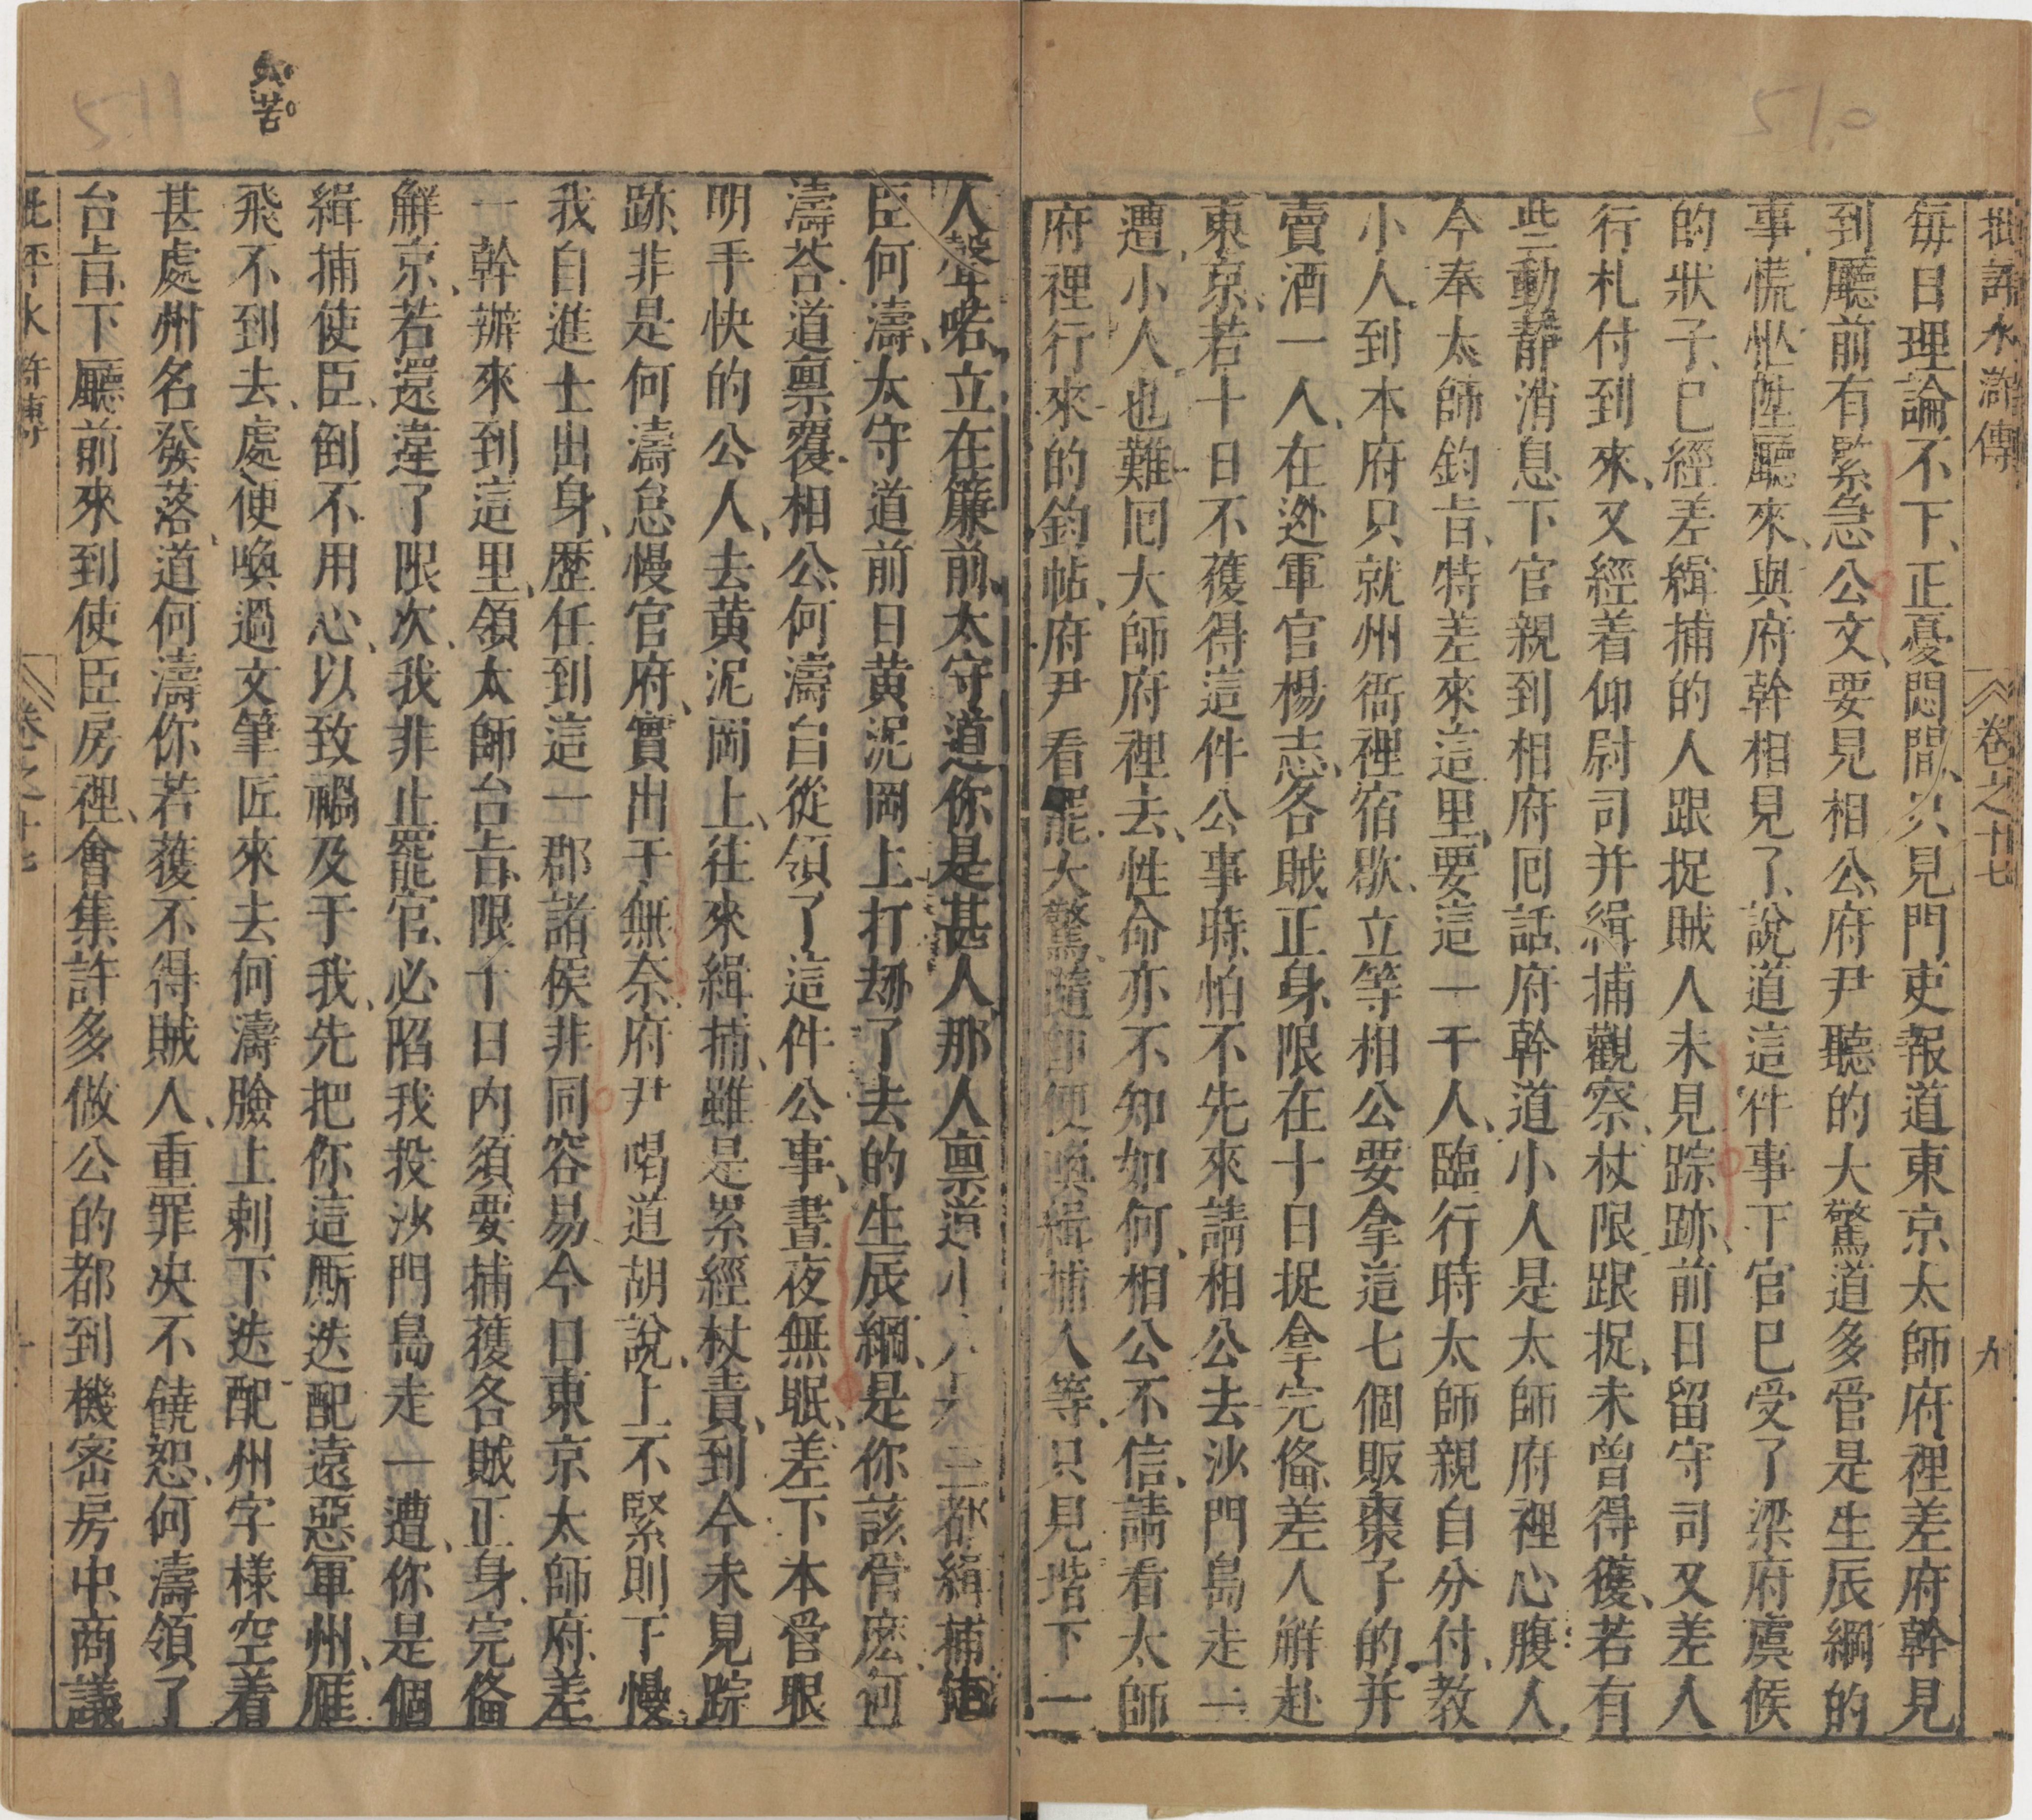 批評水滸傳 卷之十七 九
每日理論不下、正憂悶間、只見門吏報道東京太師府裡差府幹見
到廳前有緊急公文要見相公、府尹聽的大驚道多管是生辰綱的
事、慌忙陞廳來、與府幹相見了、說道這件事下官已受了梁府虞候
的狀子、已經差緝捕的人跟捉賊人未見踪跡、前日留守司又差人
行札付到來、又經着仰尉司并緝捕觀察、杖限跟捉、未曾得獲、若有
些動靜消息下官親到相府囘話、府幹道小人是太師府裡心腹人、
今奉太師鈞旨、特差來這里、要這一干人、臨行時太師親自分付、教
小人、到本府只就州衙裡宿歇、立等相公要拿這七個販棗子的并
賣酒一人、在迯軍官楊志、各賊正身、限在十日捉拿完俻、差人解赴
東京、若十日不獲得這件公事時、怕不先來請相公去沙門島走一
遭、小人也難囘太師府裡去、性命亦不知如何、相公不信、請看太師
府裡行來的鈞帖、府尹看罷大驚、隨即便喚緝捕人等、只見堦下一
人聲喏、立在簾前、太守道你是甚人、那人禀道小人是三都緝捕使
臣何濤、太守道前日黃泥岡上打刼了去的生辰綱、是你該管麽、何
濤荅道禀覆相公、何濤自從領了這件公事、晝夜無眠、差下本管眼
明手快的公人、去黃泥岡上、往來緝捕、雖是累經杖責、到今未見踪
跡、非是何濤怠慢官府、實出于無奈、府尹喝道胡說、上不緊則下慢、
我自進士出身、歷任到這一郡諸侯非同容易今日東京太師府、差
一幹辦來到這里、領太師台旨、限十日內須要捕獲各賊正身、完俻
解京、若還違了限次、我非止罷官、必陷我投沙門島走一遭、你是個
緝捕使臣、倒不用心、以致禍及于我、先把你這厮迭配遠惡軍州、雁
飛不到去、處、便喚過文筆匠來去何濤臉上刺下迭配州字樣空着
甚處州名發落、道何濤你若獲不得賊人、重罪決不饒恕、何濤領了
台旨、下廳前來到使臣房裡、會集許多做公的都到機密房中商議
批評水滸傳 卷之十七 十
苦
510
511